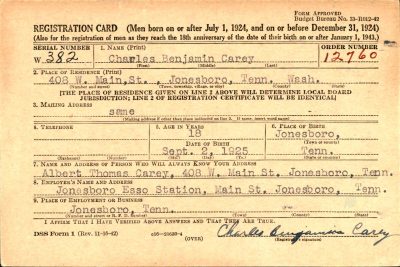 FORM APPROVED
Budget Bureau No. 33-R012-42
REGISTRATION CARD (Men born on or after July 1, 1924, and on or before December 31, 1924)
(Also for the registration of men as they reach the 18th anniversary of the date of their birth on or after January 1, 1943.)
SERIAL NUMBER 1. NAME (Print) ORDER NUMBER
W 382 Charles Benjamin Carey 12760
(First) (Middle) (Last)
2. PLACE OF RESIDENCE (Print)
408 W. Main St. , Jonesboro, Tenn. Wash.
(Number and street) (Town, township, village, or city) (County) (State)
[THE PLACE OF RESIDENCE GIVEN ON LINE 2 ABOVE WILL DETERMINE LOCAL BOARD
JURISDICTION; LINE 2 OF REGISTRATION CERTIFICATE WILL BE IDENTICAL]
3. MAILING ADDRESS
same
(Mailing address if other than place indicated on line 2. If same, insert word same)
4. TELEPHONE 5. AGE IN YEARS 6. PLACE OF BIRTH
18 Jonesboro,
DATE OF BIRTH (Town or county)
Sept. 2, 1925 Tenn.
(Exchange) (Number) (Mo.) (Day) (Yr.) (State or country)
7. NAME AND ADDRESS OF PERSON WHO WILL ALWAYS KNOW YOUR ADDRESS
Albert Thomas Carey, 408 W. Main St. Jonesboro, Tenn.
8. EMPLOYER'S NAME AND ADDRESS
Jonesboro Esso Station, Main St. Jonesboro, Tenn.
9. PLACE OF EMPLOYMENT OR BUSINESS
Jonesboro, Tenn.
(Number and street or R. F. D. number) (Town) (County) (State)
I AFFIRM THAT I HAVE VERIFIED ABOVE ANSWERS AND THAT THEY ARE TRUE.
DSS Form 1 (Rev. 11-16-42) (OVER) Charles Benjamin Carey
(Registrant's signature)